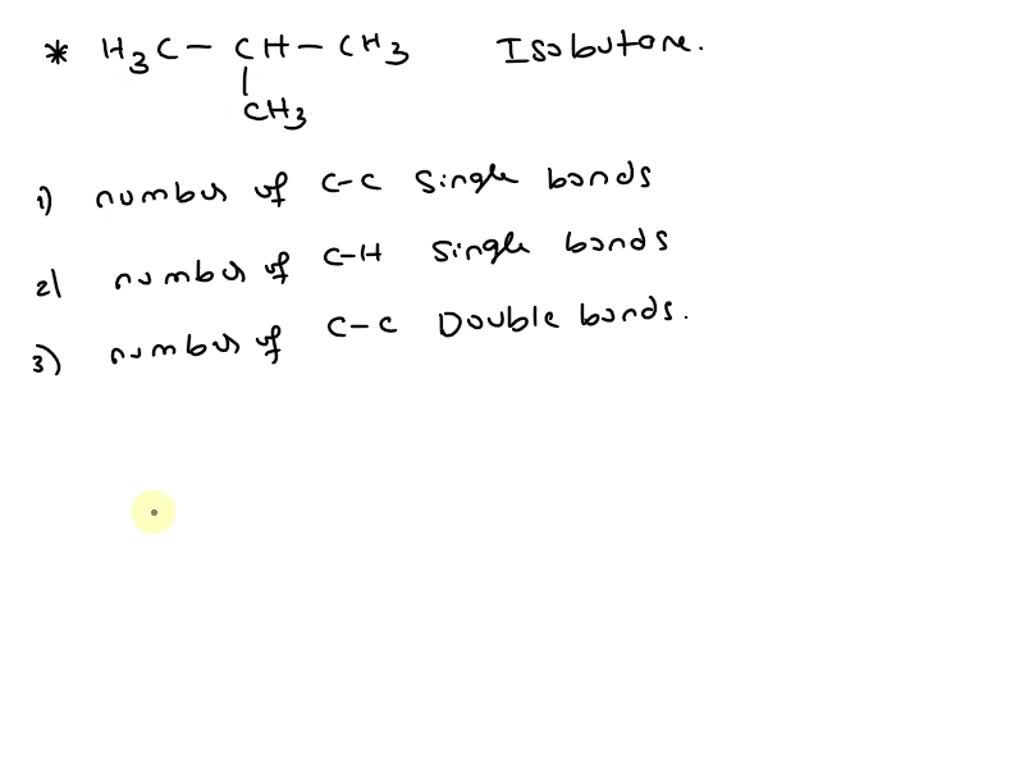 * H3C - CH - CH3 Isobutane.
|
CH3
1) number of C-C Single bonds
2) number of C-H Single bonds
3) number of C-C Double bonds.